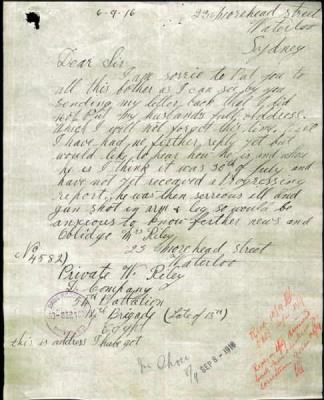 6-9-16
23 Morehead street
Waterloo
Sydney
Dear Sir
I am sorrie to Put you to
all this bother as I can see by you
sending my letter back that I did
not Put my husbands full address.
Which I will not forget this time.
I have had no further reply yet but
would like to hear how he is and where
he is I think it was 30th of July and
have not yet received a Progressing
report, he was then serrious ill and
gun shot in arm & leg so would be
anxious to know further news and
Oblidge Mrs Riley
23 Morehead street
Waterloo
(No
4582)
Private W. Riley
Company
54th Battalion
14th Brigady (Late of 13th)
Egypt
this is address I have got
SEP 8 - 1916